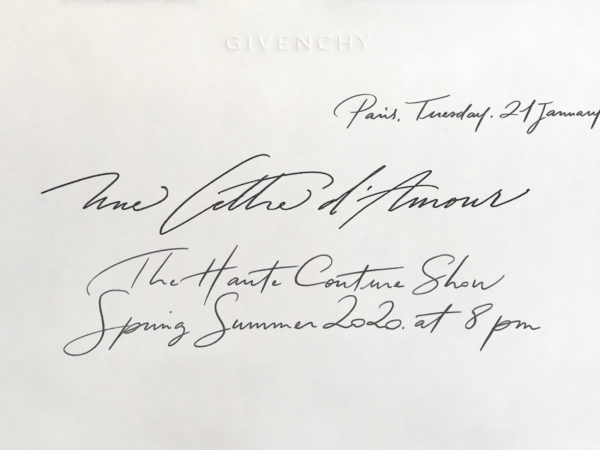 GIVENCHY
Paris. Tuesday. 21 January
Une Lettre d'Amour
The Haute Couture Show
Spring Summer 2020. at 8 pm